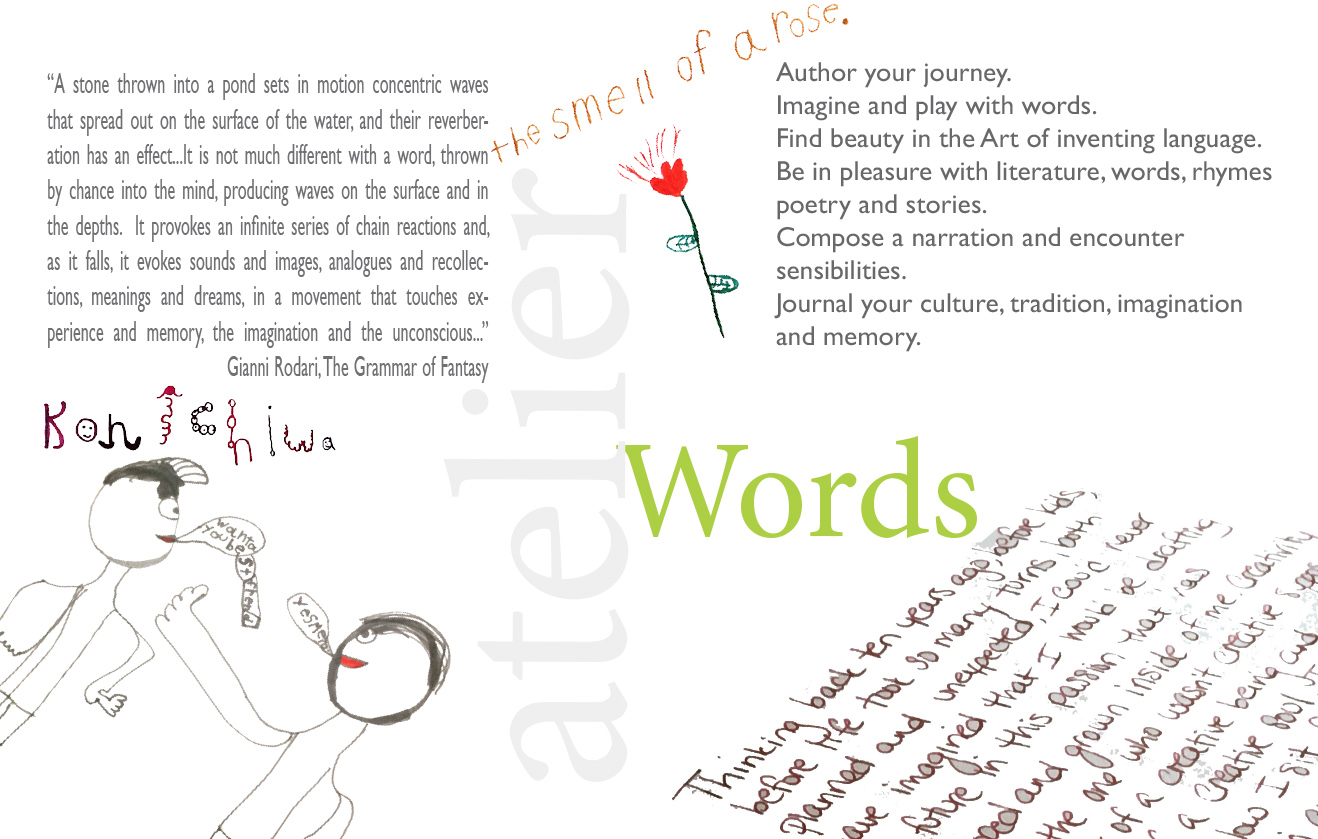 “A stone thrown into a pond sets in motion concentric waves
that spread out on the surface of the water, and their reverber-
ation has an effect...It is not much different with a word, thrown
by chance into the mind, producing waves on the surface and in
the depths.  It provokes an infinite series of chain reactions and,
as it falls, it evokes sounds and images, analogues and recollec-
tions, meanings and dreams, in a movement that touches ex-
perience and memory, the imagination and the unconscious...”
Gianni Rodari, The Grammar of Fantasy
the smell of a rose.
Author your journey.
Imagine and play with words.
Find beauty in the Art of inventing language.
Be in pleasure with literature, words, rhymes
poetry and stories.
Compose a narration and encounter
sensibilities.
Journal your culture, tradition, imagination
and memory.
Konichiwa
wanta
you be
yes
atelier
Words
Thinking back ten years ago, before kids,
before life took so many turns both
planned and unexpected, I never
imagined that I would be drafting
future in this passion that was
and grown inside of me. Creativity
the one who wasn't creative
of a creative being and
a creative soul
I sit